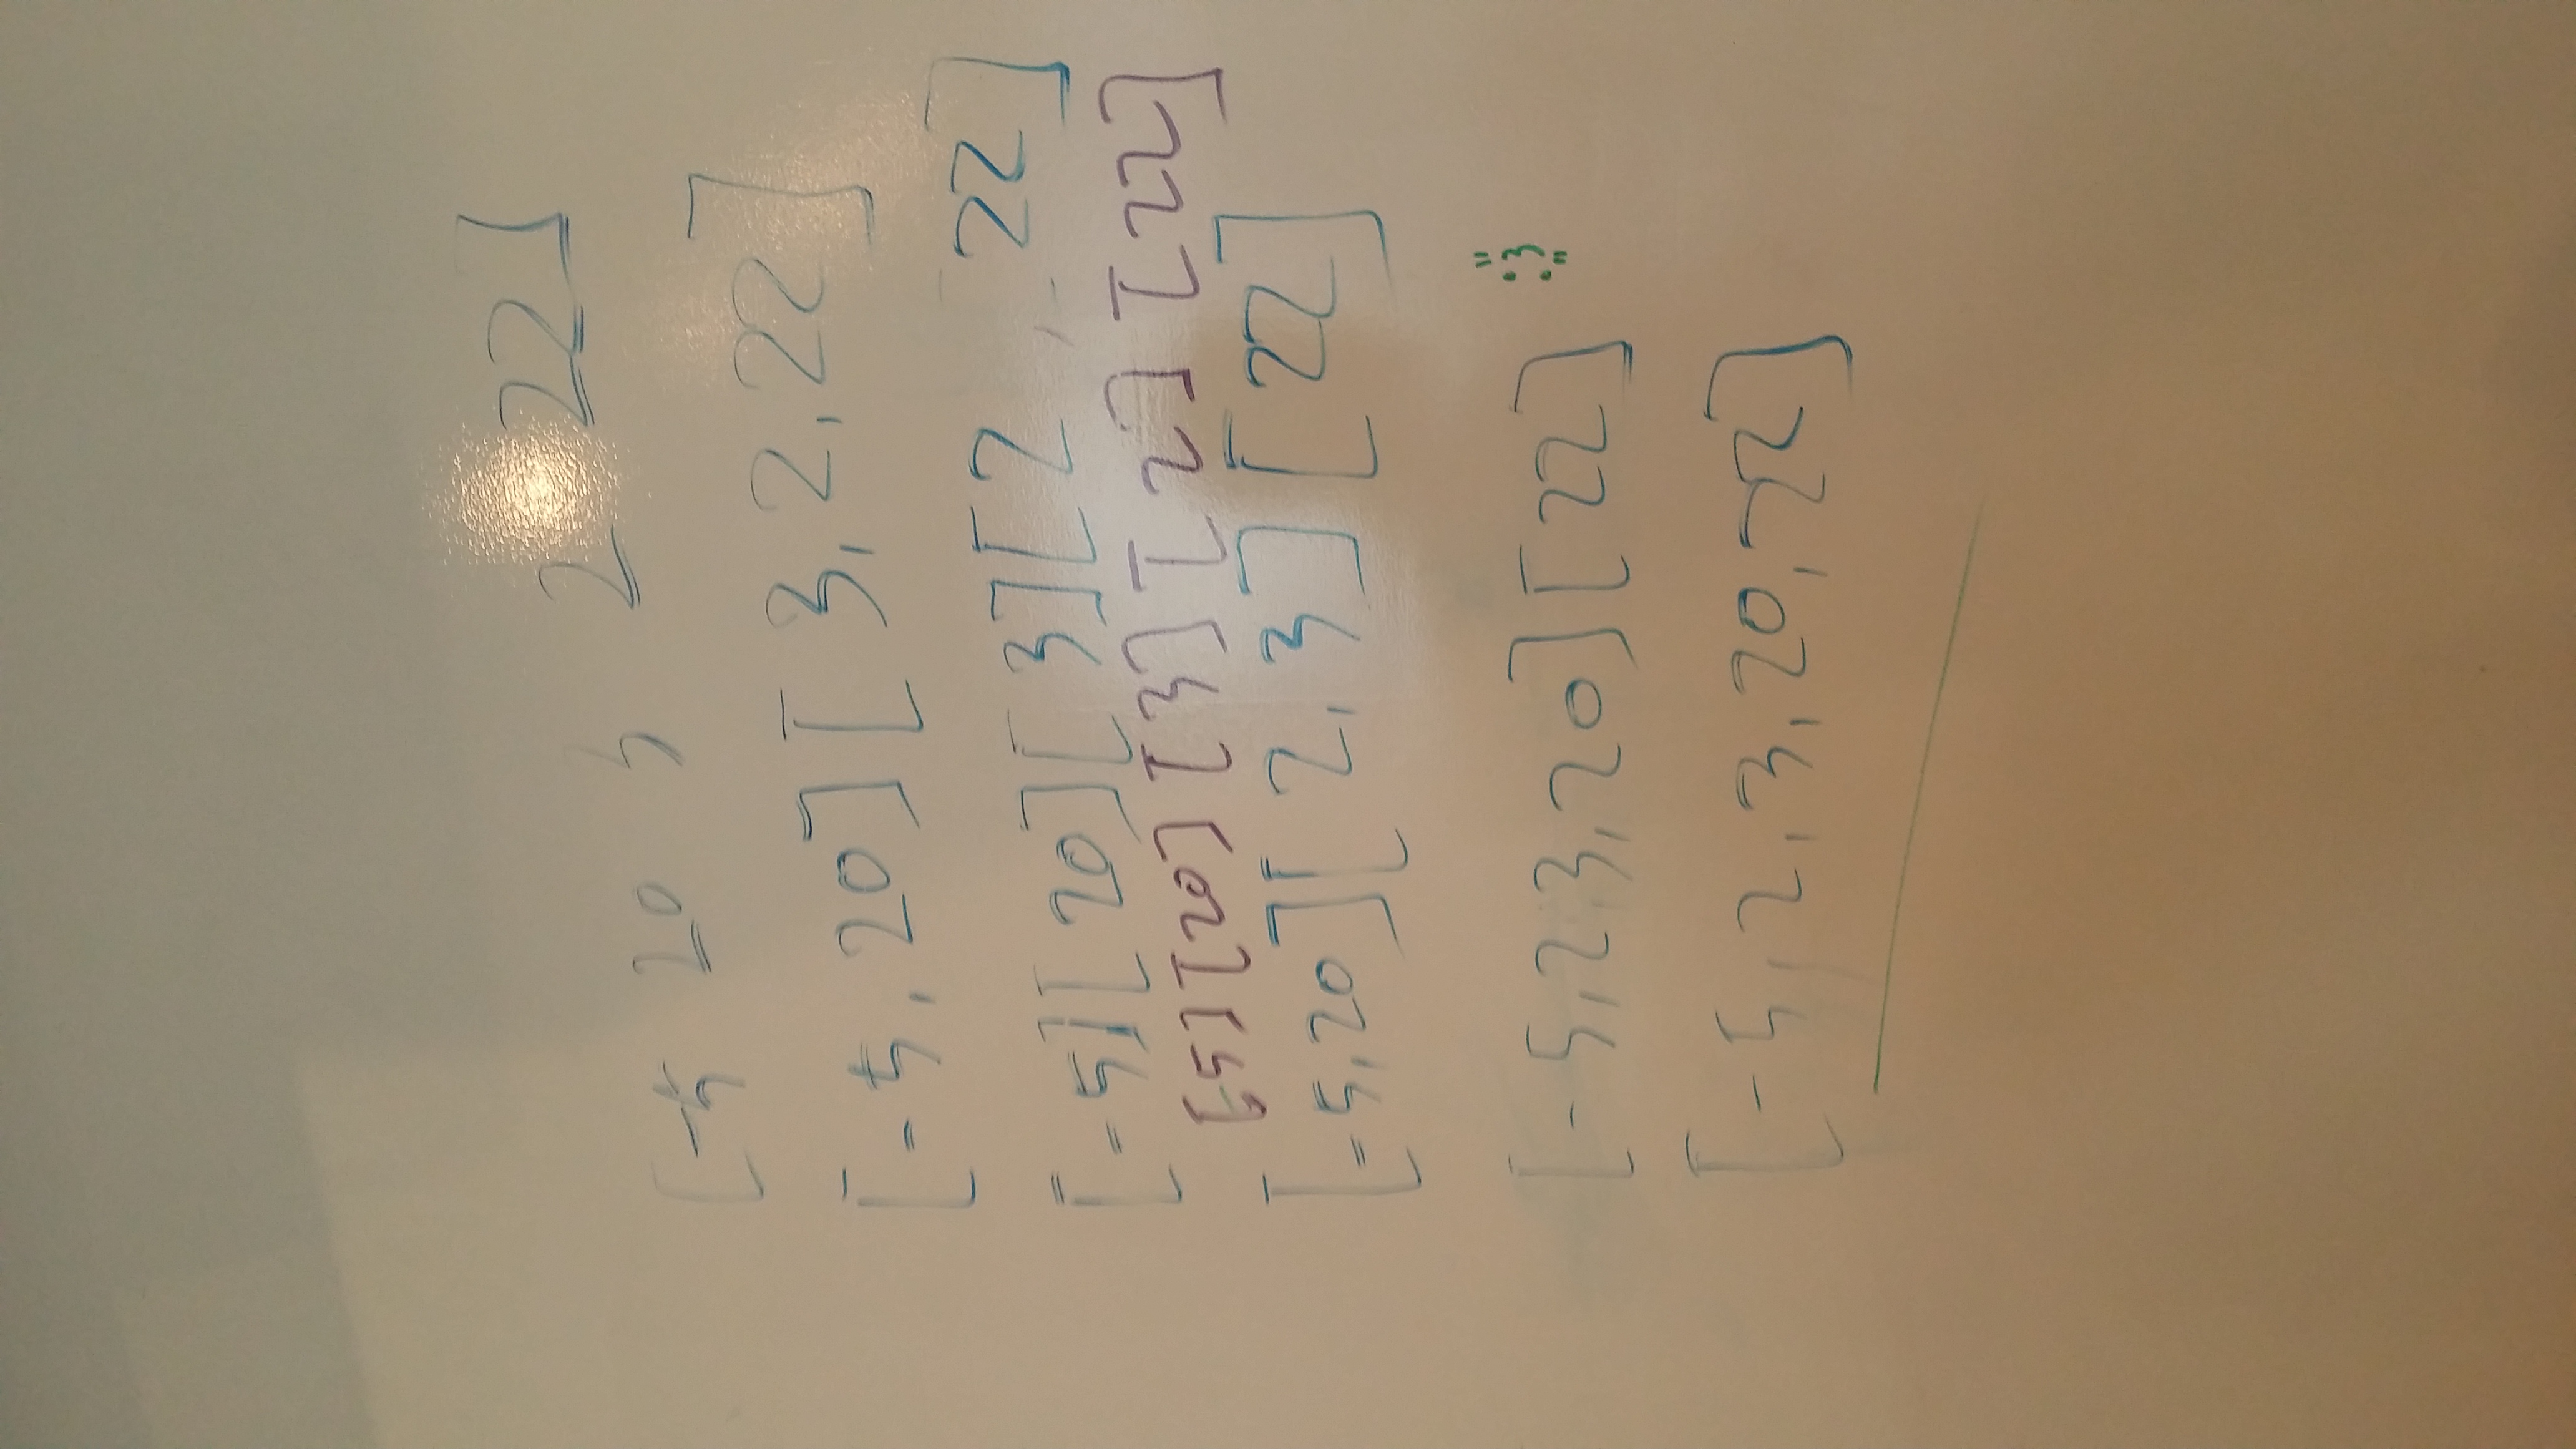 [-5 20 3 2 22]
[-5, 20][3, 2, 22]
[-5][20][3][2, 22]
[-5][20][3][2][22]
[-5, 20][2, 3][22]
[-5, 2, 3, 20][22]
[-5, 2, 3, 20, 22]